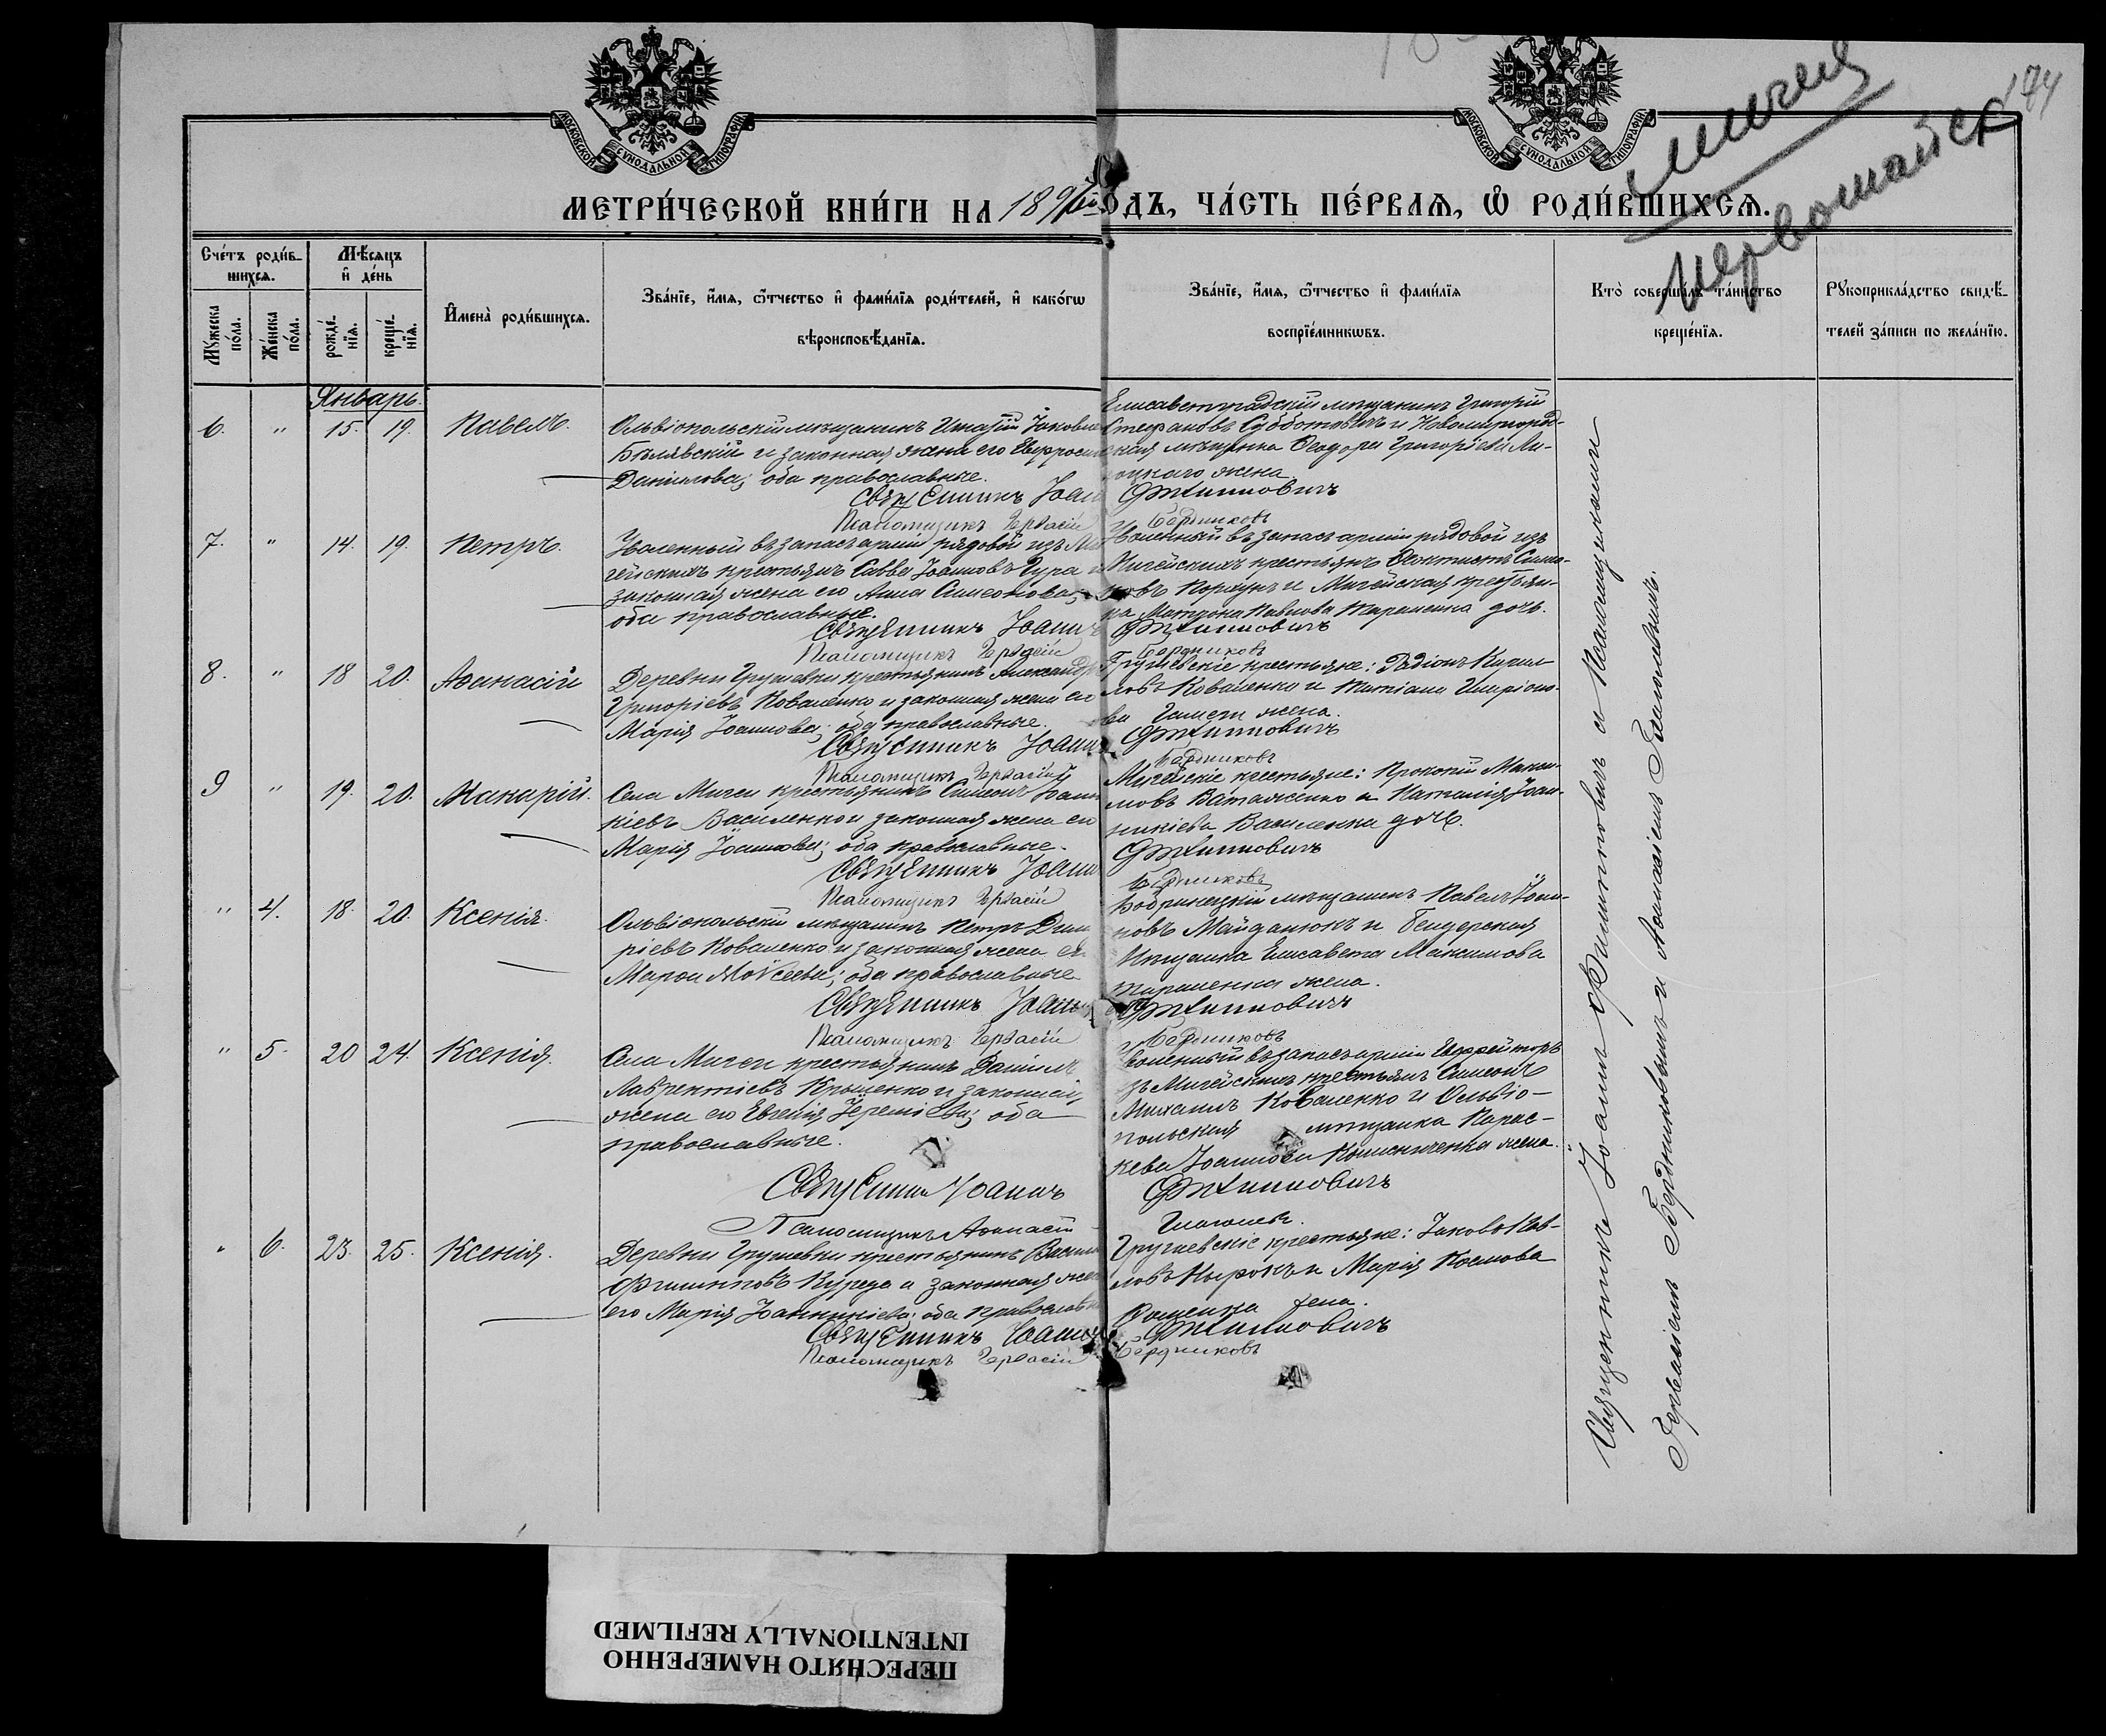 МОСКОВСКОЙ СѴНОДАЛЬНОЙ ТИПОГРАФІИ
МОСКОВСКОЙ СѴНОДАЛЬНОЙ ТИПОГРАФІИ
174
Мигея
Первомайск
МЕТРИ́ЧЕСКОЙ КНИ́ГИ НА 189
ОДЪ, ЧА́СТЬ ПЕ́РВАѦ, Ѽ РОДИ́ВШИХСѦ.
Сче́тъ роди́в-
шихсѧ.
Мѣ́сѧцъ
и҆ де́нь
Мꙋ́жеска по́ла.
Же́нска по́ла.
рожде́-нїѧ.
креще́-нїѧ.
И҆мена̀ роди́вшихсѧ.
Зва́нїе, и҆́мѧ, ѻ҆́тчество и҆ фами́лїѧ роди́телей, и҆ како́гѡ
вѣроисповѣ́данїѧ.
Зва́нїе, и҆́мѧ, ѻ҆́тчество и҆ фами́лїѧ
воспрїе́мникѡвъ.
Кто̀ соверша́лъ та́инство
креще́нїѧ.
Рꙋкоприкла́дство свидѣ́-
телей за́писи по жела́нїю.
Январь.
6. " 15. 19. Павелъ.
Ольвіопольскій мѣщанинъ Яковле
Бѣлявскій и законная жена его Евфроси
Даніилова; оба православные.
Священникъ Іоан
Псаломщикъ Гервасій
Елисаветградскій мѣщанинъ Григорій
Стефановъ Субботовичъ и Новомиргород-
ская мѣщанка Ѳеодора Григоріева Ли-
жена
Филипповичъ
Бердниковъ
7. " 14. 19. Петръ.
Уволенный въ запасъ арміи рядовой изъ Ми
гейскихъ крестьянъ Савва Іоанновъ Гура и
законная жена его Анна Симеонова;
оба православные.
Священникъ Іоаннъ
Псаломщикъ Гервасій
Уволенный въ запасъ арміи рядовой изъ
Мигейскихъ крестьянъ Ѳеоктистъ Симео-
новъ Коржунъ и Мигейская крестьян-
ка Матрона Павлова Тараненка дочь.
Филипповичъ
Бердниковъ
8. " 18 20. Аѳанасій
Деревни Грушевки крестьянинъ Александръ
Григоріевъ Коваленко и законная жена его
Марія Іоаннова; оба православные.
Священникъ Іоаннъ
Псаломщикъ Гервасій
Грушевскіе крестьяне: Родіонъ Кирил-
ловъ Коваленко и Татіана Иларіоно-
ва жена.
Филипповичъ
Бердниковъ
9 " 19. 20. Макарій.
Села Мигеи крестьянинъ Симеонъ Іоанни
кіевъ Василенко и законная жена его
Марія Іоаннова; оба православные.
Священникъ Іоанн
Псаломщикъ Гервасій
Мигейскіе крестьяне: Прокопій Макси-
мовъ Ватаженко и Наталія Іоан-
никіева Василенка дочь.
Филипповичъ
Бердниковъ
" 4. 18. 20. Ксенія.
Ольвіопольскій мѣщанинъ Петръ Дими
ріевъ Коваленко и законная жена его
Марѳа Моѵсеева; оба православные
Священникъ Іоаннъ
Псаломщикъ Гервасій
Бобринецкій мѣщанинъ Павелъ Іоан-
новъ Майданюкъ и Бендерская
мѣщанка Елисавета Максимова
жена.
Филипповичъ
Бердниковъ
" 5. 20 24. Ксенія.
Села Мигеи крестьянинъ Даніилъ
Лаврентіевъ Крыщенко и законная
жена его Евгенія Іереміева; оба
православные.
Священникъ Іоаннъ
Псаломщикъ Аѳанасій
Уволенный въ запасъ арміи Ефрейторъ
изъ Мигейскихъ крестьянъ Симеонъ
Михаилъ Коваленко и Ольвіо-
польская мѣщанка Парас-
кева Іоаннова жена.
Филипповичъ
" 6. 23. 25. Ксенія.
Деревни Грушевки крестьянинъ Васил
Филипповъ Курела и законная жена
его Марія Іоанникіева; оба православн
Священникъ Іоаннъ
Псаломщикъ Гервасій
Грушевскіе крестьяне: Іаковъ Пав-
ловъ Нырокъ и Марія Космова
жена.
Филипповичъ
Бердниковъ
Священникъ Іоаннъ Филипповичъ с Псаломщиками
Гервасіемъ Бердниковымъ и Аѳанасіемъ
ПЕРЕСНЯТО НАМЕРЕННО
INTENTIONALLY REFILMED